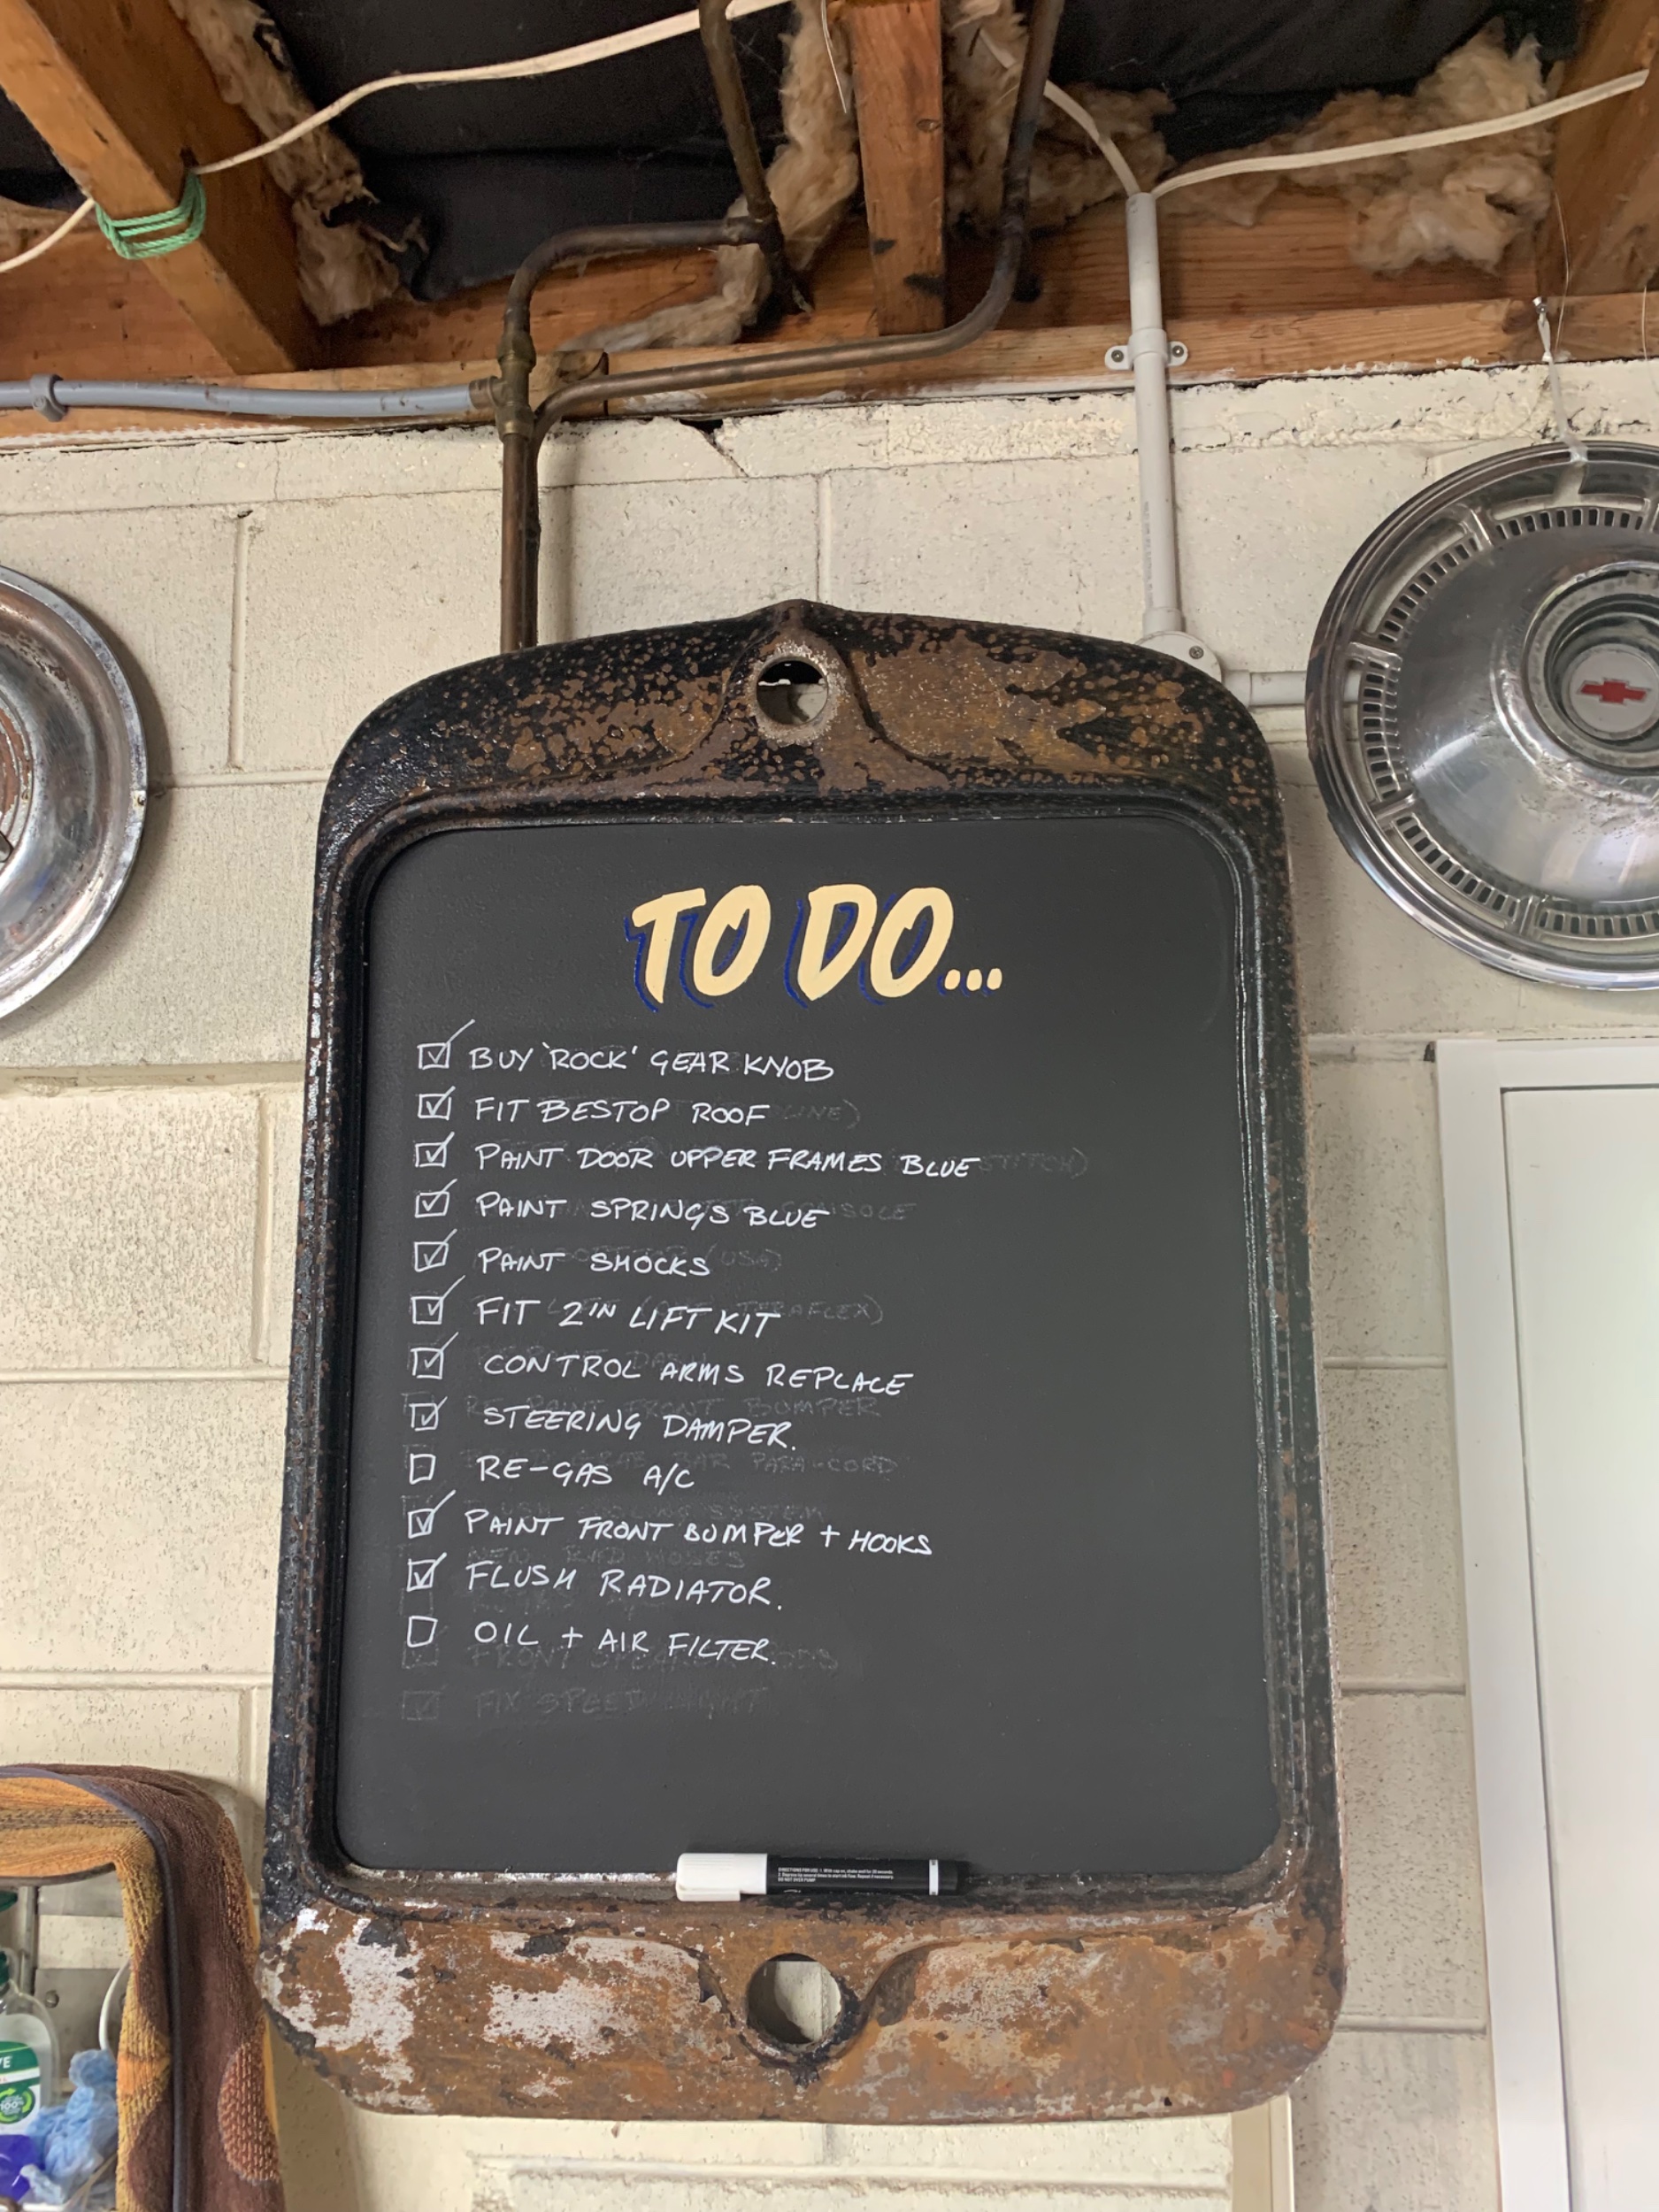 TO DO...
BUY 'ROCK' GEAR KNOB
FIT BESTOP ROOF
PAINT DOOR UPPER FRAMES BLUE
PAINT SPRINGS BLUE
PAINT SHOCKS
FIT 2IN LIFT KIT
CONTROL ARMS REPLACE
STEERING DAMPER.
RE-GAS A/C
PAINT FRONT BUMPER + HOOKS
FLUSH RADIATOR.
OIL + AIR FILTER.
FIX SPEED